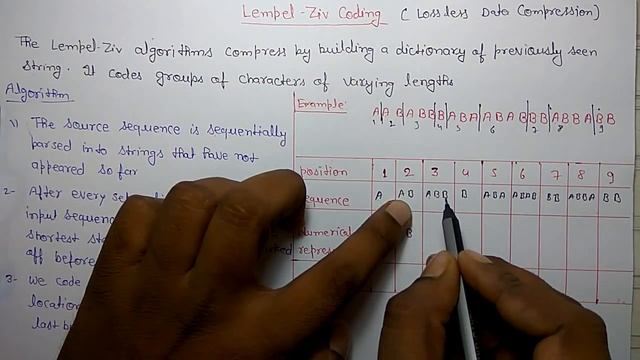 Lempel-Ziv Coding ( Lossless Data Compression)
The Lempel-Ziv algorithms compress by building a dictionary of previously seen
string. It codes groups of characters of varying lengths
Algorithm
Example:
A|AB|ABB|B|ABA|ABAB|BB|ABBA|BB
1 2 3 4 5 6 7 8 9
1) The source sequence is sequentially
parsed into strings that have not
appeared so far
position 1 2 3 4 5 6 7 8 9
sequence A AB ABB B ABA ABAB BB ABBA BB
2- After every
input
shortest
off before
numerical B
repres
3- we code
location
last b